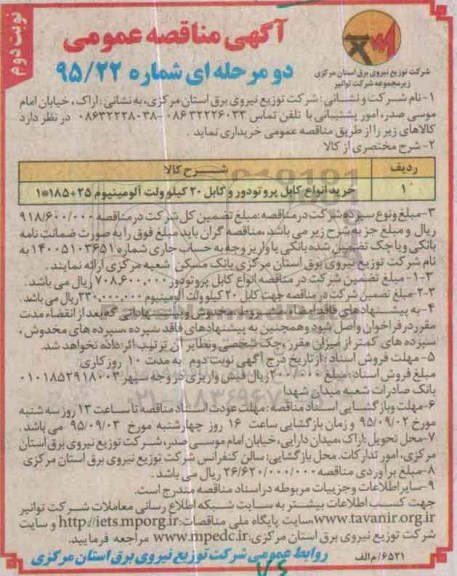 نوبت دوم
آگهی مناقصه عمومی
دو مرحله ای شماره ۹۵/۲۲
شرکت توزیع نیروی برق استان مرکزی
زیرمجموعه شرکت توانیر
۱-نام شرکت و نشانی: شرکت توزیع نیروی برق استان مرکزی، به نشانی: اراک، خیابان امام
موسی صدر، امور پشتیبانی با تلفن تماس ۰۸۶۳۲۲۲۶۰۳۳-۰۸۶۳۲۲۲۸۰۳۸ در نظر دارد
کالاهای زیر را از طریق مناقصه عمومی خریداری نماید.
۲-شرح مختصری از کالا
ردیف شرح کالا
۱ خرید انواع کابل پروتودور و کابل ۲۰ کیلو ولت آلومینیوم ۲۵+۱۸۵*۱
۳-مبلغ و نوع سپرده شرکت در مناقصه: مبلغ تضمین کل شرکت در مناقصه ۹۱۸/۶۰۰/۰۰۰
ریال و مبلغ جز به شرح زیر می باشد، مناقصه گران باید مبلغ فوق را به صورت ضمانت نامه
بانکی و یا چک تضمین شده بانکی یا واریز وجه به حساب جاری شماره ۱۴۰۰۵۱۰۳۶۵۱ به
نام شرکت توزیع نیروی برق استان مرکزی بانک مسکن شعبه مرکزی ارائه نمایند.
۳-۱-مبلغ تضمین شرکت در مناقصه انواع کابل پروتودور ۷۰۸,۶۰۰,۰۰۰ ریال می باشد.
۳-۲-مبلغ تضمین شرکت در مناقصه جهت کابل ۲۰ کیلو ولت آلومینیوم ۲۳۰,۰۰۰,۰۰۰ ریال می باشد.
۴-به پیشنهادهای فاقد امضاء، مشروط، مخدوش و پیشنهاداتی که بعد از انقضاء مدت
مقرر در فراخوان واصل شود و همچنین به پیشنهادهای فاقد سپرده، سپرده های مخدوش،
سپرده های کمتر از میزان مقرر، چک شخصی و نظایر آن ترتیب اثر داده نخواهد شد.
۵-مهلت فروش اسناد: از تاریخ درج آگهی نوبت دوم به مدت ۱۰ روز کاری
مبلغ فروش اسناد: مبلغ ریال فیش واریزی در وجه سپهر ۰۱۰۱۸۵۲۹۱۸۰۰۳
بانک صادرات شعبه میدان شهدا
۶-مهلت و بازگشایی اسناد مناقصه: مهلت عودت اسناد مناقصه تا ساعت ۱۳ روز سه شنبه
مورخ ۹۵/۰۹/۰۲ و زمان بازگشایی ساعت ۱۶ روز چهارشنبه مورخ ۹۵/۰۹/۰۳ می باشد.
۷-محل تحویل: اراک، میدان دارایی، خیابان امام موسی صدر، شرکت توزیع نیروی برق استان
مرکزی، امور تدارکات. محل بازگشایی: سالن کنفرانس شرکت توزیع نیروی برق استان مرکزی
۸-مبلغ برآوردی مناقصه ۲۶/۶۲۰/۰۰۰/۰۰۰ ریال می باشد.
۹-سایر اطلاعات و جزییات مربوطه در اسناد مناقصه مندرج است.
جهت کسب اطلاعات بیشتر به سایت شبکه اطلاع رسانی معاملات شرکت توانیر
www.tavanir.org.ir سایت پایگاه ملی مناقصات: http://iets.mporg.ir و سایت
شرکت توزیع نیروی برق استان مرکزی: www.mpedc.ir مراجعه فرمایید.
روابط عمومی شرکت توزیع نیروی برق استان مرکزی
۶۵۲۱/م الف